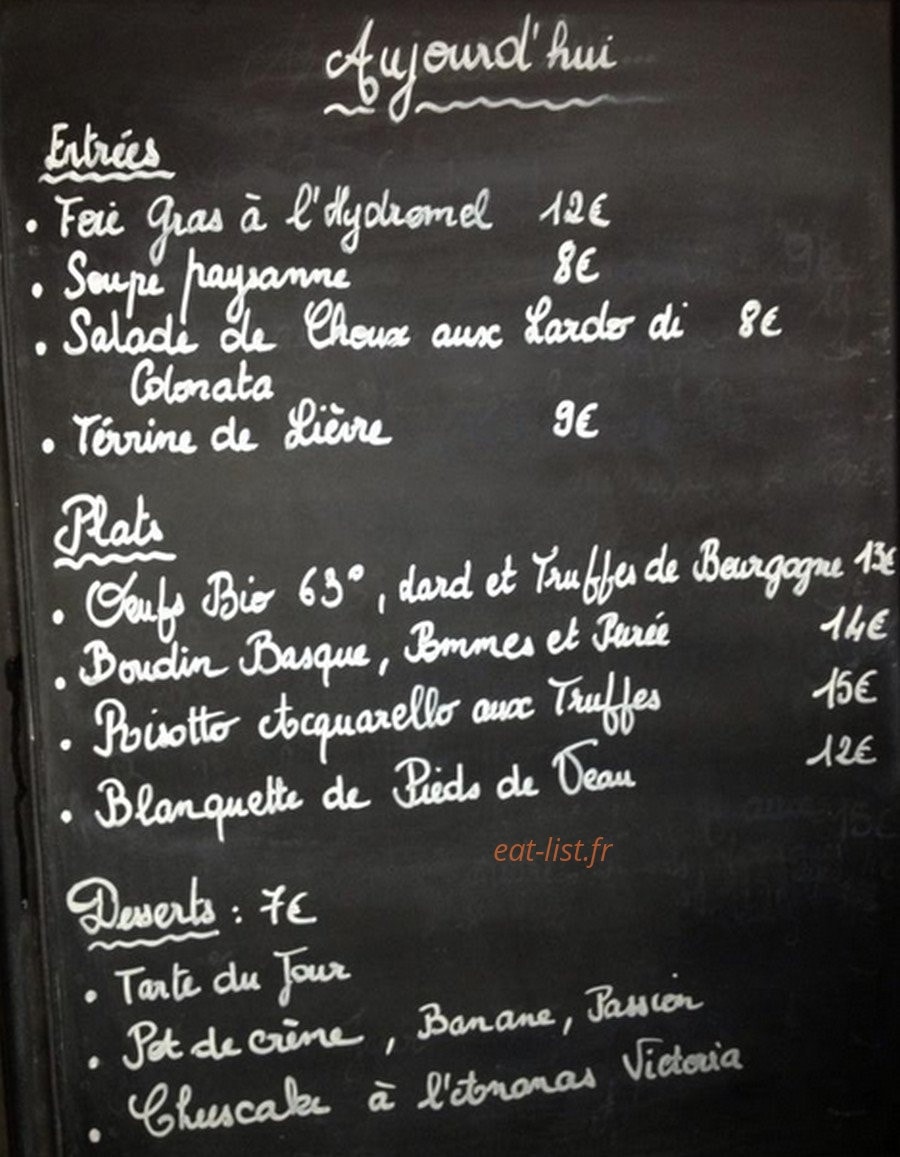 Aujourd'hui
Entrées
• Foie Gras à l'Hydromel 12€
• Soupe paysanne 8€
• Salade de Choux aux Lardo di 8€
Colonata
• Térrine de Lièvre 9€
Plats
• Oeufs Bio 63°, dard et Truffes de Bourgogne 13€
• Boudin Basque, Pommes et Purée 14€
• Risotto Acquarello aux Truffes 15€
• Blanquette de Pieds de Veau 12€
eat-list.fr
Desserts : 7€
• Tarte du Jour
• Pot de crème, Banane, Passion
• Cheescake à l'Ananas Victoria